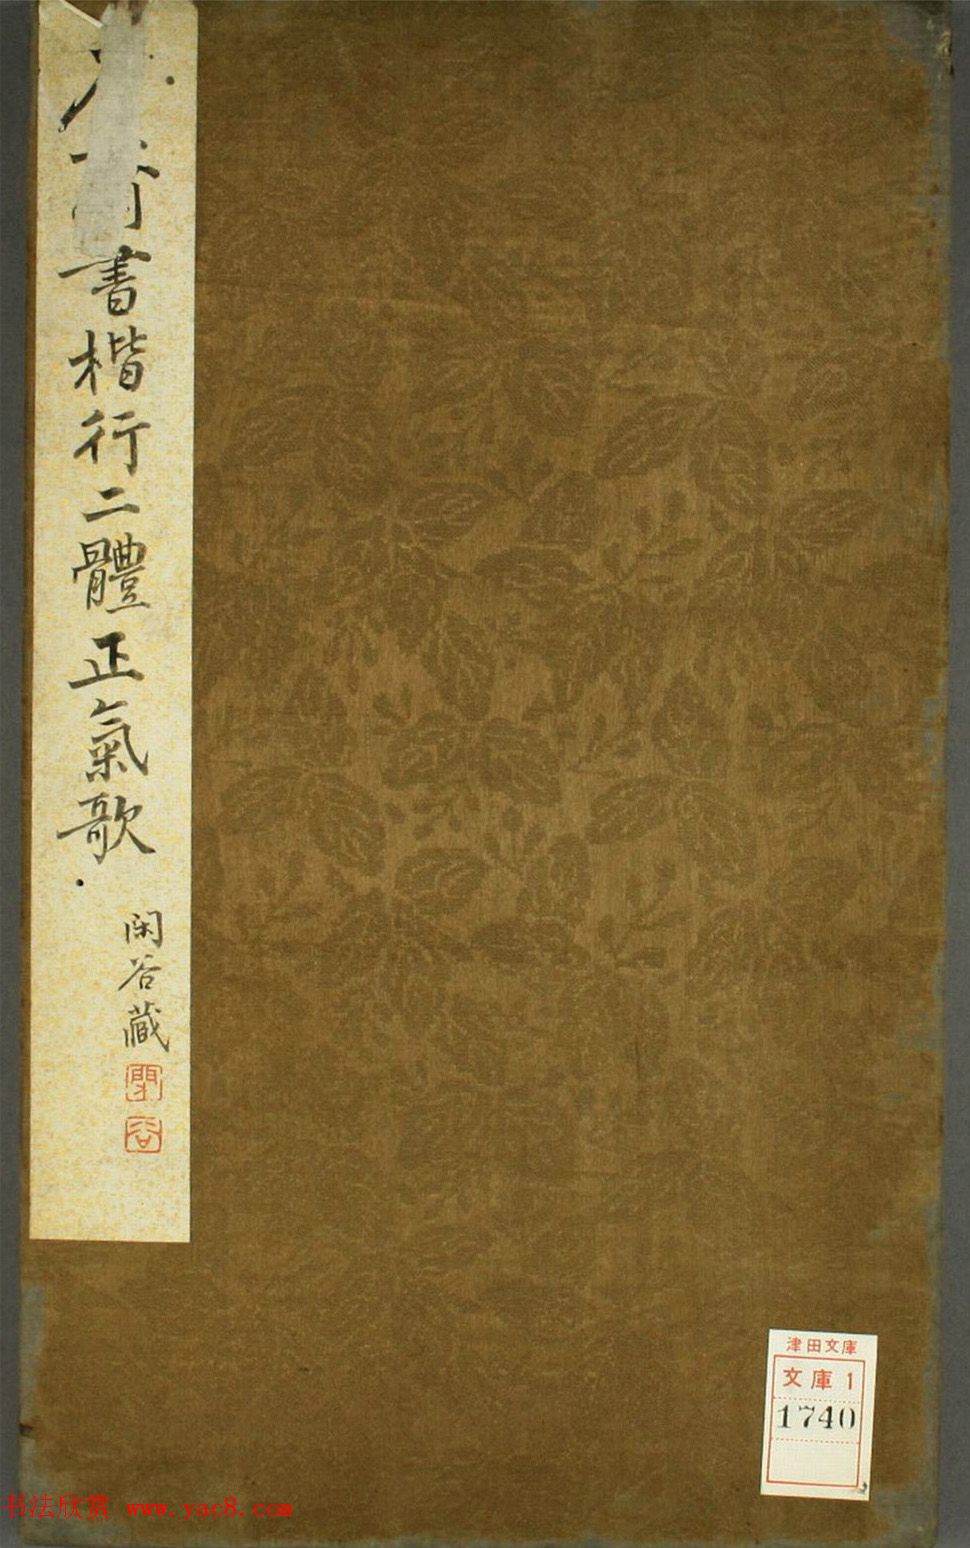 書楷行二體正氣歌
閑谷藏
閑谷
津田文庫
文庫 1
1740
书法欣赏 www.yac8.com